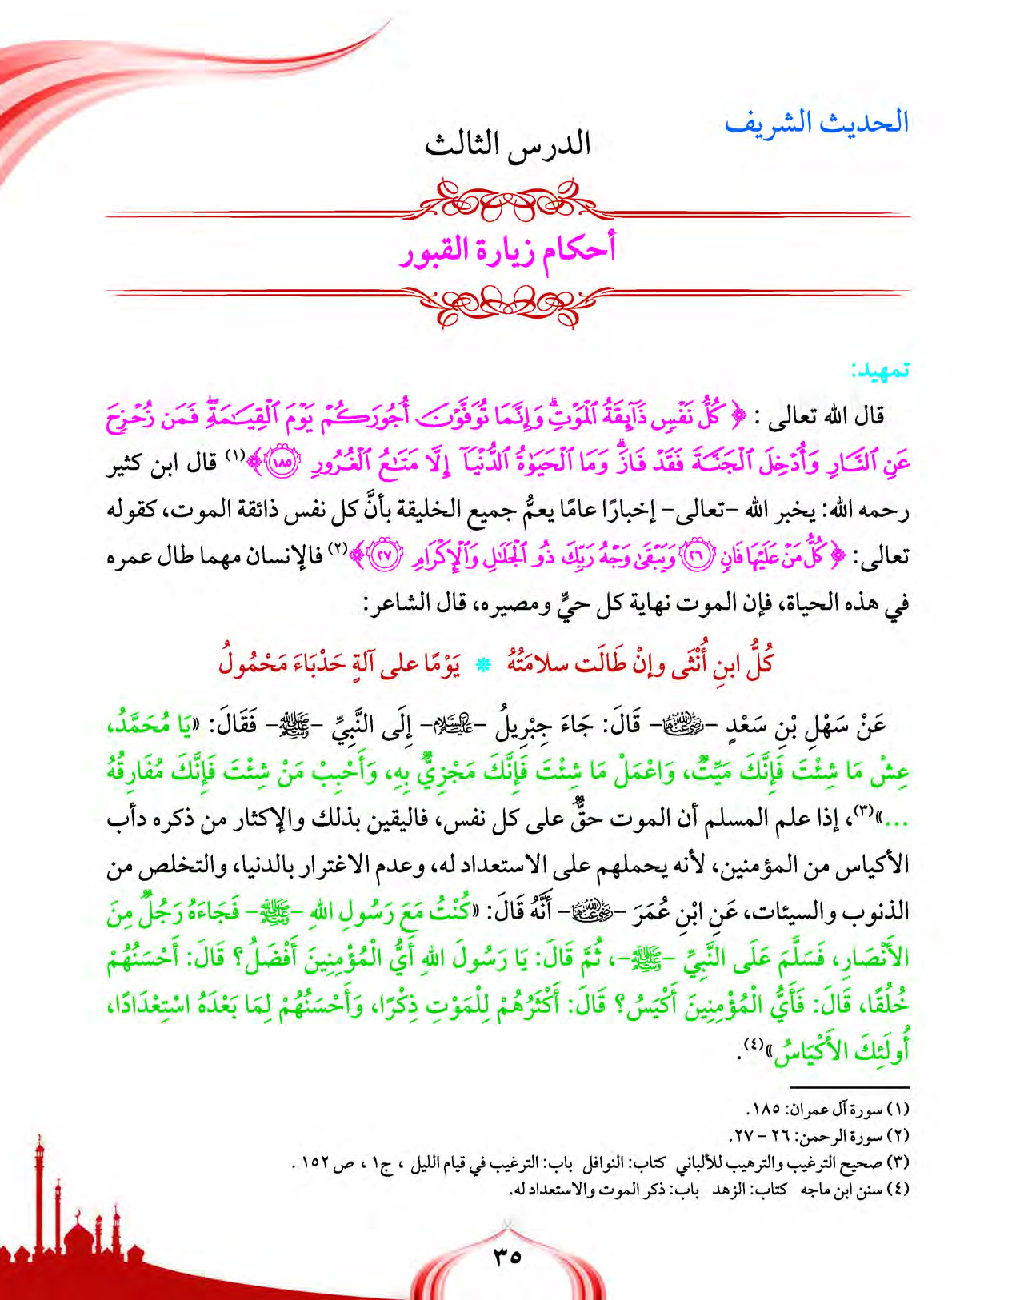 الحديث الشريف
الدرس الثالث
أحكام زيارة القبور
تمهيد:
قال الله تعالى : ﴿ كُلُّ نَفْسٍ ذَآئِقَةُ ٱلْمَوْتِۗ وَإِنَّمَا تُوَفَّوْنَ أُجُورَكُمْ يَوْمَ ٱلْقِيَـٰمَةِۖ فَمَن زُحْزِحَ
عَنِ ٱلنَّارِ وَأُدْخِلَ ٱلْجَنَّةَ فَقَدْ فَازَۗ وَمَا ٱلْحَيَوٰةُ ٱلدُّنْيَآ إِلَّا مَتَـٰعُ ٱلْغُرُورِ ١٨٥ ﴾(١) قال ابن كثير
رحمه الله: يخبر الله -تعالى- إخبارًا عامًا يعمُّ جميع الخليقة بأنَّ كل نفس ذائقة الموت، كقوله
تعالى: ﴿ كُلُّ مَنْ عَلَيْهَا فَانٍ ٢٦ وَيَبْقَىٰ وَجْهُ رَبِّكَ ذُو ٱلْجَلَـٰلِ وَٱلْإِكْرَامِ ٢٧ ﴾(٢) فالإنسان مهما طال عمره
في هذه الحياة، فإن الموت نهاية كل حيٍّ ومصيره، قال الشاعر:
كُلُّ ابنِ أُنْثَى وإنْ طَالَت سلامَتُهُ * يَوْمًا على آلةٍ حَدْبَاءَ مَحْمُولُ
عَنْ سَهْلِ بْنِ سَعْدٍ -رضي الله عنهما- قَالَ: جَاءَ جِبْرِيلُ -عليه السلام- إِلَى النَّبِيِّ -ﷺ- فَقَالَ: «يَا مُحَمَّدُ،
عِشْ مَا شِئْتَ فَإِنَّكَ مَيِّتٌ، وَاعْمَلْ مَا شِئْتَ فَإِنَّكَ مَجْزِيٌّ بِهِ، وَأَحْبِبْ مَنْ شِئْتَ فَإِنَّكَ مُفَارِقُهُ
...»(٣)، إذا علم المسلم أن الموت حقٌّ على كل نفس، فاليقين بذلك والإكثار من ذكره دأب
الأكياس من المؤمنين، لأنه يحملهم على الاستعداد له، وعدم الاغترار بالدنيا، والتخلص من
الذنوب والسيئات، عَنِ ابْنِ عُمَرَ -رضي الله عنهما- أَنَّهُ قَالَ: «كُنْتُ مَعَ رَسُولِ اللهِ -ﷺ- فَجَاءَهُ رَجُلٌ مِنَ
الأَنْصَارِ، فَسَلَّمَ عَلَى النَّبِيِّ -ﷺ-، ثُمَّ قَالَ: يَا رَسُولَ اللهِ أَيُّ الْمُؤْمِنِينَ أَفْضَلُ؟ قَالَ: أَحْسَنُهُمْ
خُلُقًا، قَالَ: فَأَيُّ الْمُؤْمِنِينَ أَكْيَسُ؟ قَالَ: أَكْثَرُهُمْ لِلْمَوْتِ ذِكْرًا، وَأَحْسَنُهُمْ لِمَا بَعْدَهُ اسْتِعْدَادًا،
أُولَئِكَ الأَكْيَاسُ»(٤).
(١) سورة آل عمران: ١٨٥.
(٢) سورة الرحمن: ٢٦ - ٢٧.
(٣) صحيح الترغيب والترهيب للألباني كتاب: النوافل باب: الترغيب في قيام الليل ، ج١ ، ص ١٥٢ .
(٤) سنن ابن ماجه كتاب: الزهد باب: ذكر الموت والاستعداد له.
٣٥